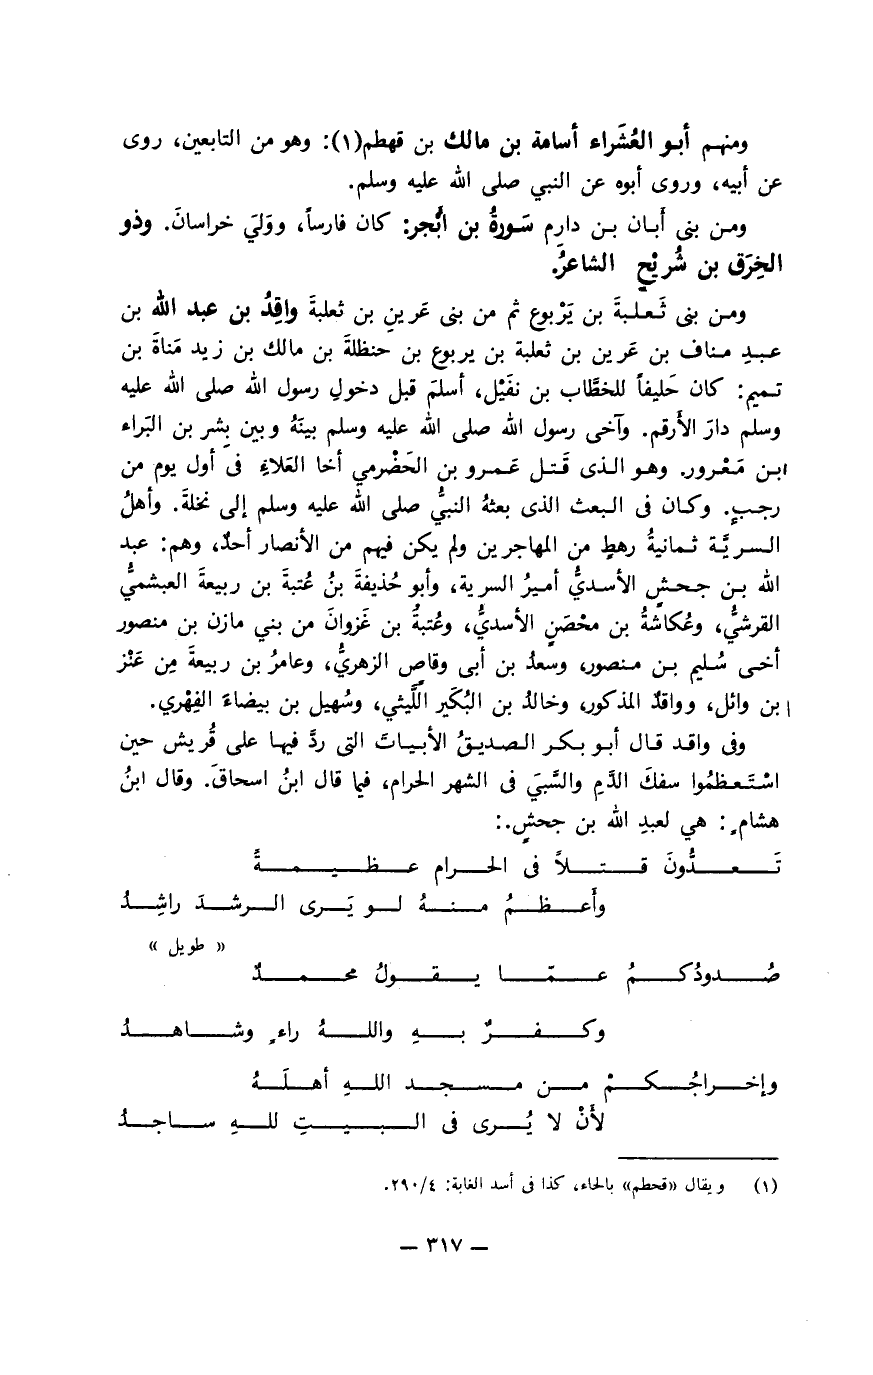 ومنهم أبو العُشَراء أسامة بن مالك بن قهطم(١): وهو من التابعين، روى
عن أبيه، وروى أبوه عن النبي صلى الله عليه وسلم.
ومن بنى أَبان بن دارِم سَورةُ بن أَبْجر: كان فارساً، ووَلَيَ خراسانَ. وذو
الخِرَق بن شُريْحٍ الشاعرُ.
ومن بنى ثَعلبةَ بن يَرْبوع ثم من بنى عَرينِ بن ثعلبةَ واقِدُ بن عبد الله بن
عبدِ مناف بن عَرين بن ثعلبة بن يربوع بن حنظلةَ بن مالك بن زيد مَناةَ بن
تميم: كان حَليفاً للخطَّاب بن نفَيْل، أسلمَ قبل دخولِ رسول الله صلى الله عليه
وسلم دارَ الأرقم. وآخى رسول الله صلى الله عليه وسلم بينَهُ وبين بِشر بن البَراء
ابن مَعْرور. وهو الذى قَتل عَمرو بن الحَضْرمي أخا العَلاءِ فى أول يوم من
رجبٍ. وكان فى البعث الذى بعثهُ النبيُّ صلى الله عليه وسلم إلى نخلةَ. وأهلُ
السريَّة ثمانيةُ رهطٍ من المهاجرين ولم يكن فيهم من الأنصار أحدٌ، وهم: عبد
الله بن جحشٍ الأسديُّ أميرُ السرية، وأبو حُذيفةَ بنُ عُتبةَ بن ربيعةَ العبشميُّ
القرشيُّ، وعُكاشةُ بن محْصَنٍ الأسديُّ، وعُتبةُ بن غَزوانَ من بني مازن بن منصور
أخى سُليم بن منصور، وسعدُ بن أبى وقاصٍ الزهريُّ، وعامرُ بن ربيعةَ مِن عَنْز
ابن وائل، وواقدٌ المذكور، وخالدُ بن البُكَير اللَّيثي، وسُهيل بن بيضاءَ الفِهْري.
وفى واقد قال أبو بكر الصديقُ الأبياتَ التى ردَّ فيها على قُريش حين
اسْتَعظمُوا سفكَ الدَّمِ والسَّبيَ فى الشهر الحرام، فيما قال ابنُ اسحاقَ. وقال ابنُ
هشامٍ: هي لعبدِ الله بن جحشٍ.:
تَعدُّونَ قتلاً فى الحرام عظيمةً
وأَعظمُ منهُ لو يَرى الرشدَ راشِدُ
« طويل »
صُدودُكمُ عمّا يقولُ محمدٌ
وكفرٌ بهِ واللهُ راءٍ وشاهدُ
وإخراجُكمْ من مسجد اللهِ أهلَهُ
لأَنْ لا يُرى فى البيتِ للهِ ساجدُ
(١) ويقال «قحطم» بالحاء، كذا فى أسد الغابة: ٢٩٠/٤.
— ٣١٧ —